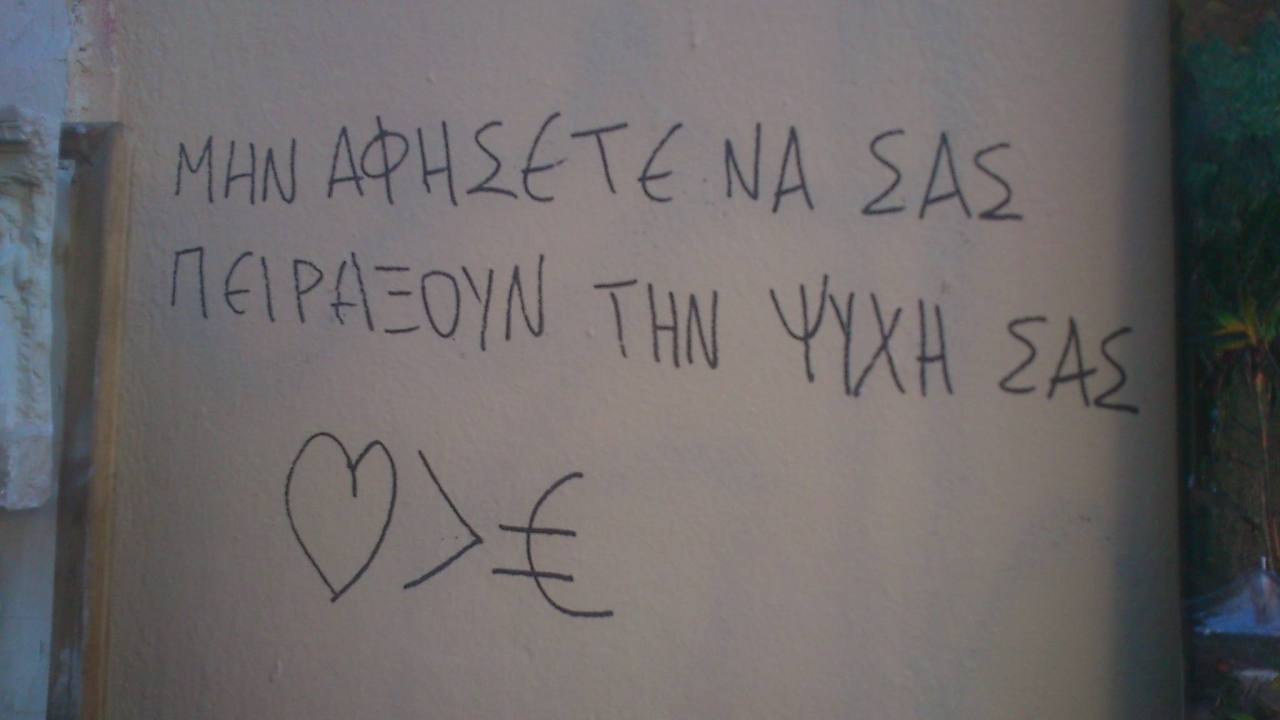 ΜΗΝ ΑΦΗΣΕΤΕ ΝΑ ΣΑΣ
ΠΕΙΡΑΞΟΥΝ ΤΗΝ ΨΥΧΗ ΣΑΣ
♡ > €